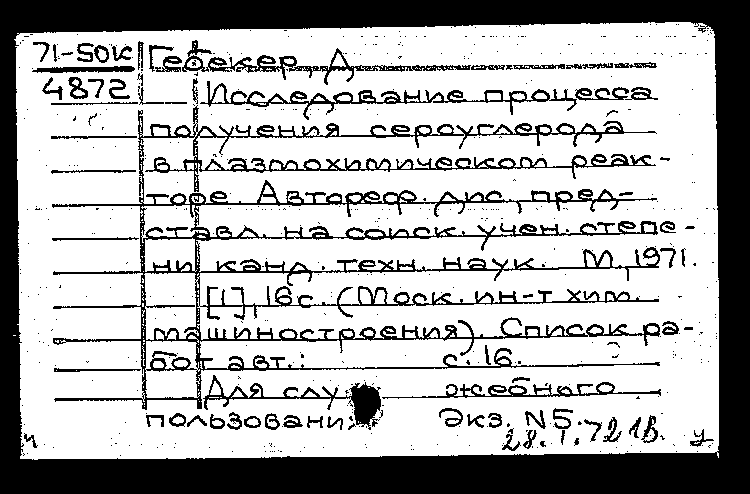 71-50к Гебекер, Д
4872 Исследование процесса
получения сероуглерода
в плазмохимическом реак-
торе. Автореф. дис., пред-
ставл. на соиск. учен. степе-
ни канд. техн. наук. М., 1971.
[1], 16с. (Моск. ин-т хим.
машиностроения). Список ра-
бот авт.: с. 16.
Для служебного
пользования Экз. N5.
28.I.72 1В.
ч у